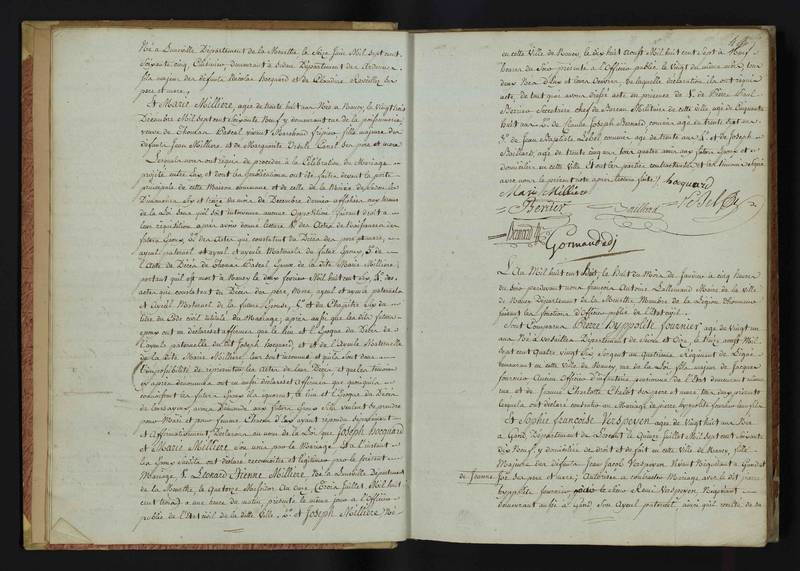 Né à Lunéville Département de la Meurthe le Seize Juin Mil Sept cent
Soixante cinq, demeurant à Sedan Département des Ardennes
fils majeur des défunts Nicolas Hocquard et de Claudine
père et mere.
Et Marie Millière, agée de trente huit ans Née à Nancy le Vingt trois
Décembre Mil Sept cent Soixante Neuf y demeurant rue de la poissonnerie
veuve de Thomas Pascal vivant fripier, fille majeure des
défunts Jean Millière et de Marguerite Ursule ses père et mere
Lesquels nous ont requis de procéder à la Célébration du Mariage
projetté entre eux et dont les publications ont été faites devant la porte
principale de cette Maison commune et de celle de la Mairie de Sedan les
Dimanches Six et treize du mois de Decembre dernier affichées aux termes
de la Loi sans qu'il soit intervenu aucune Opposition faisant droit à
leur réquisition après avoir donné lecture 1.° des Actes de Naissances des
futurs Epoux, 2.° des Actes qui constatent du Décès des pere et mere,
ayeul paternel et ayeul et ayeule Maternels du futur Epoux, 3.° de
l'Acte de Décès de Thomas Pascal Epoux de la dite Marie Millière,
portant qu'il est mort à Nancy le fevrier Mil huit cent six, 4.° des
actes qui constatent du Décès des père, Mere, ayeul et ayeule paternels
et ayeul Maternel de la future Epouse, 5.° et du Chapitre Six du
titre du Code civil intitulé du Mariage; après aussi que les dits futurs
epoux ont eu déclaré et affirmé que le lieu et l'époque du Décès de
l'ayeule paternelle dudit Joseph Hocquard, et de l'ayeule Maternelle
de la dite Marie Millière, leur sont inconnus et qu'ils sont dans
l'impossibilité de représenter les actes de leur Décès, et que les témoins
cy après dénommés ont eu aussi déclaré et affirmé, que quoiqu'ils
connoissent les futurs Epoux ils ignorent le lieu et l'époque du Décès
de avons Demandé aux futurs Epoux s'ils veulent se prendre
pour Mari et pour femme Chacun d'eux ayant répondu séparément
et affirmativement, Déclarons au nom de la Loi que Joseph Hocquard
et Marie Millière sont unis par le Mariage. Et à l'instant
les Epoux susdits ont déclaré reconnoitre et légitimer par le présent
Mariage, 1.° Léonard Etienne Millière Né à Lunéville Département
de la Meurthe, le Quatorze Messidor An onze (trois Juillet Mil huit
cent trois) à une heure du matin, présenté le même jour à l'Officier
public de l'Etat civil de la ditte Ville, 2.° et Joseph Millière Né
en cette Ville de Nancy, le dix huit Aoust Mil huit cent Sept à Neuf
heures du Soir présenté à l'Officier public le Vingt du même mois,
deux Nés d'Eux et leurs Oeuvres, de laquelle déclaration ils ont requis
acte, de tout quoi avons dressé acte en présence de 1.° Pierre Paul
Berrier Secretaire chef du Bureau Militaire de cette ville, agé de Cinquante
huit ans 2.° de Joseph Bernard commis agé de trente huit ans
3.° de Jean Baptiste Lebel commis agé de trente ans 4.° et de Joseph
Baillard, agé de trente cinq ans tous quatre amis aux futurs Epoux et
domiciliés en cette Ville. Et ont les parties contractantes et les témoins signés
avec nous le présent acte après lecture faite /.
Marie Millière
hocquard
Berrier
Baillard
Lebel
Bernard
Gormand adj
L'An Mil huit cent huit, le huit du Mois de Janvier à cinq heures
du Soir pardevant nous françois Antoine Lallemand Maire de la Ville
de Nancy Département de la Meurthe Membre de la Légion d'honneur
faisant les fonctions d'Officier public de l'Etat civil.
Sont Comparus Pierre hyppolite fournier agé de Vingt un
ans Né à Versailles Département de Seine et Oise, le trois aoust Mil
Sept cent Quatre Vingt Six Sergent au Quatrieme Régiment de Ligne
demeurant en cette Ville de Nancy rue de la Loi, fils majeur de Jacques
fournier Ancien Officier d'infanterie pensionné de l'Etat demeurant même
rue et de Jeanne Charlotte Chelot ses pere et mere, tous deux présents
lesquels ont déclaré consentir au Mariage de pierre hyppolite fournier leur fils
Et Sophie francoise Verspeyen agée de Vingt huit ans Née
à Gand, Département de Lescaut le Quinze Juillet Mil Sept cent Soixante
Dix Neuf, y domiciliée de droit et de fait en cette Ville de Nancy, fille
Majeure des défunts Jean Jacob Verspeyen Vivant Négociant à Gand et
de Jeanne
ses pere et mere; Autorisée à contracter Mariage avec le dit pierre
hyppolite fournier par le Sieur Remi Verspeyen Négociant
demeurant aussi à Gand, Son ayeul paternel, ainsi qu'il conste de sa